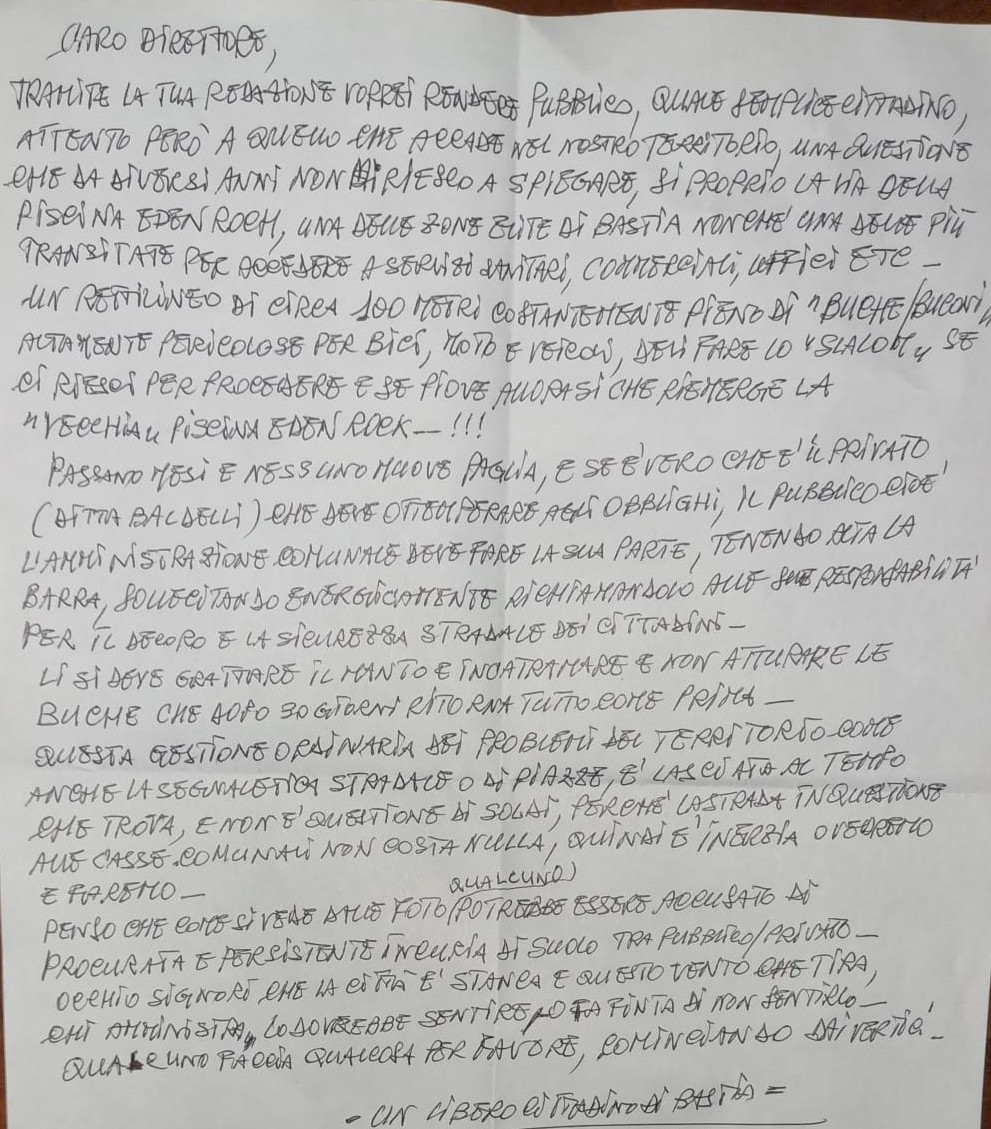 CARO DIRETTORE,
TRAMITE LA TUA REDAZIONE VORREI RENDERE PUBBLICO, QUALE SEMPLICE CITTADINO,
ATTENTO PERÒ A QUELLO CHE ACCADE NEL NOSTRO TERRITORIO, UNA QUESTIONE
CHE DA DIVERSI ANNI NON RIESCO A SPIEGARE, SI PROPRIO LA VIA DELLA
PISCINA EDEN ROCH, UNA DELLE ZONE ELITE DI BASTIA NONCHÉ UNA DELLE PIÙ
TRANSITATE PER ACCEDERE A SERVIZI SANITARI, COMMERCIALI, UFFICI ETC —
UN RETTILINEO DI CIRCA 100 METRI COSTANTEMENTE PIENO DI "BUCHE/BUCONI"
ALTAMENTE PERICOLOSE PER BICI, MOTO E VEICOLI, DEVI FARE LO "SLALOM" SE
CI RIESCI PER PROCEDERE E SE PIOVE ALLORA SI CHE RIEMERGE LA
"VECCHIA" PISCINA EDEN ROCK — !!!
PASSANO MESI E NESSUNO MUOVE PAGLIA, E SE È VERO CHE E' IL PRIVATO
(DITTA BALDELLI) CHE DEVE OTTEMPERARE AGLI OBBLIGHI, IL PUBBLICO CIOE'
L'AMMINISTRAZIONE COMUNALE DEVE FARE LA SUA PARTE, TENENDO ALTA LA
BARRA, SOLLECITANDO ENERGICAMENTE RICHIAMANDOLO ALLE SUE RESPONSABILITA'
PER IL DECORO E LA SICUREZZA STRADALE DEI CITTADINI —
LI SI DEVE GRATTARE IL MANTO E INCATRAMARE E NON ATTURARE LE
BUCHE CHE DOPO 30 GIORNI RITORNA TUTTO COME PRIMA —
QUESTA GESTIONE ORDINARIA DEI PROBLEMI DEL TERRITORIO COME
ANCHE LA SEGNALETICA STRADALE O DI PIAZZE, E' LASCIATA AL TEMPO
CHE TROVA, E NON E' QUESTIONE DI SOLDI, PERCHE' LA STRADA IN QUESTIONE
ALLE CASSE COMUNALI NON COSTA NULLA, QUINDI E' INERZIA O VEDREMO
E FAREMO —
QUALCUNO)
PENSO CHE COME SI VEDE DALLE FOTO (POTREBBE ESSERE ACCUSATO DI
PROCURATA E PERSISTENTE INCURIA DI SUOLO TRA PUBBLICO/PRIVATO —
OCCHIO SIGNORI CHE LA CITTÀ E' STANCA E QUESTO VENTO CHE TIRA,
CHI AMMINISTRA, LO DOVREBBE SENTIRE, O FA FINTA DI NON SENTIRLO —
QUALCUNO FACCIA QUALCOSA PER FAVORE, COMINCIANDO DAI VERTICI —
- UN LIBERO CITTADINO DI BASTIA =